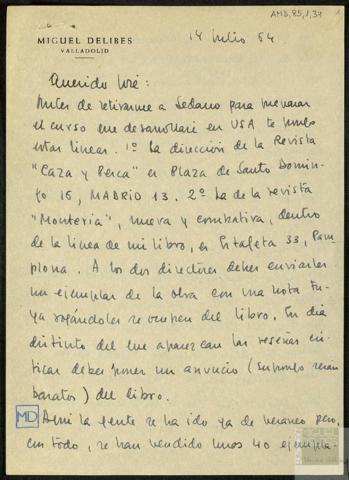 AMD, 85, 1, 34
MIGUEL DELIBES
VALLADOLID
14 julio 64
Querido José:
Antes de retirarme a Sedano para preparar
el curso que desarrollaré en USA te pongo
estas líneas. 1º La dirección de la Revista
"Caza y Pesca" es Plaza de Santo Domin-
go 16, MADRID 13. 2º La de la revista
"Montería", nueva y combativa, dentro
de la línea de mi libro, es Estafeta 33, Pam-
plona. A los dos directores debes enviarles
un ejemplar de la obra con una nota tu-
ya rogándoles se ocupen del libro. En día
distinto del que aparezcan las reseñas crí-
ticas debes poner un anuncio (supongo serán
baratos) del libro.
MD
Aquí la gente se ha ido ya de veraneo pero,
con todo, se han vendido unos 40 ejempla-